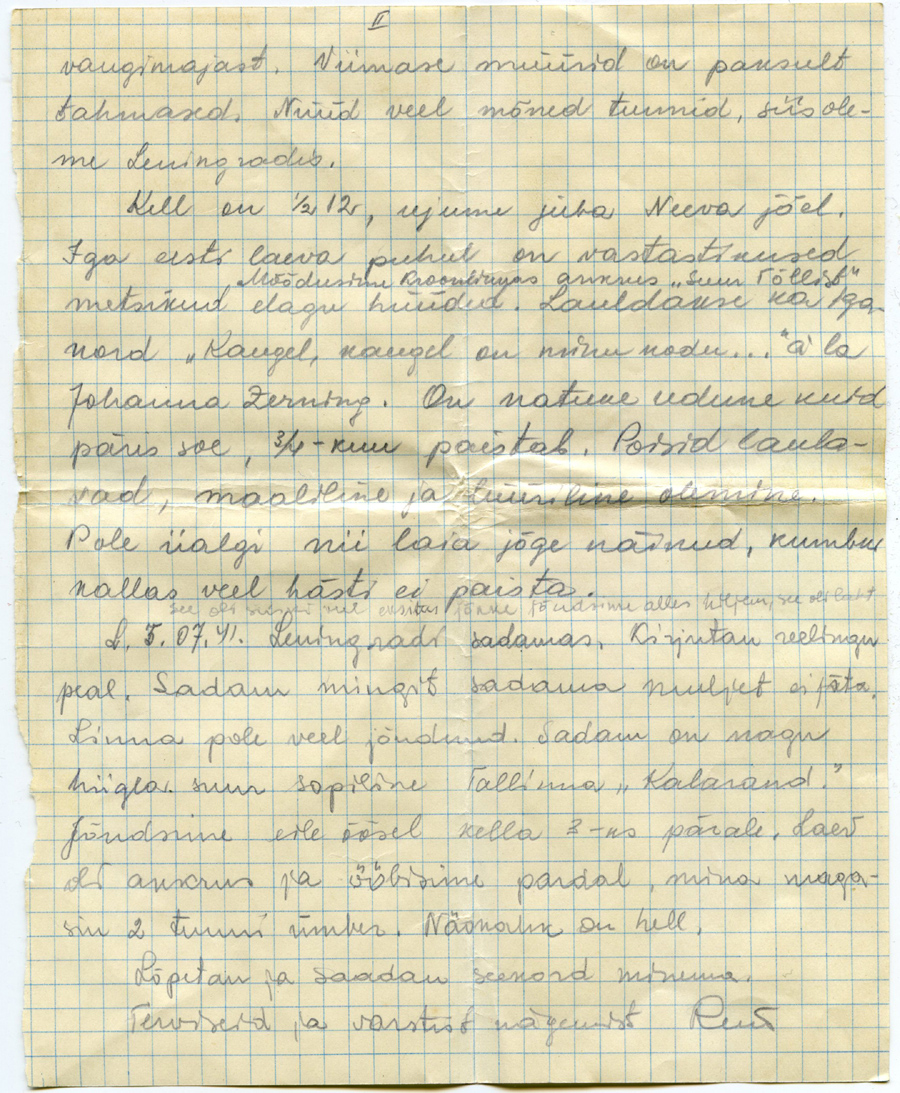 II
vangimajast. Viimase müürid on paksult
tahmased. Nüüd veel mõned tunnid, siis ole-
me Leningradis.
Kell on ½ 12, ujume juba Neeva jõel.
Iga eesti laeva puhul on vastastikused
Möödusime Kroonlinnas ankrus „Suur Tõllist"
metsikud elagu hüüded. Lauldakse ka iga-
kord „Kaugel, kaugel on minu kodu..." à la
Johanna Zerning. On natuke udune kuid
päris soe, ¾-kuu paistab. Poisid laula-
vad, maaliline ja lüüriline olemine.
Pole iialgi nii laia jõge näinud, kumbki
kallas veel hästi ei paista.
see oli jõkke jõudsime alles hiljem, see oli laht
L. 5. 07. 41. Leningradi sadamas. Kirjutan reelingu
peal. Sadam mingit sadama muljet ei jäta.
Linna pole veel jõudnud. Sadam on nagu
hiigla suur sopiline Tallinna „Kalarand."
Jõudsime eile öösel kella 3-ks pärale. Laev
oli ankrus ja ööbisime pardal, mina maga-
sin 2 tunni ümber. Näonahk on hell.
Lõpetan ja saadan seekord minema.
Terviseid ja varstist nägemist